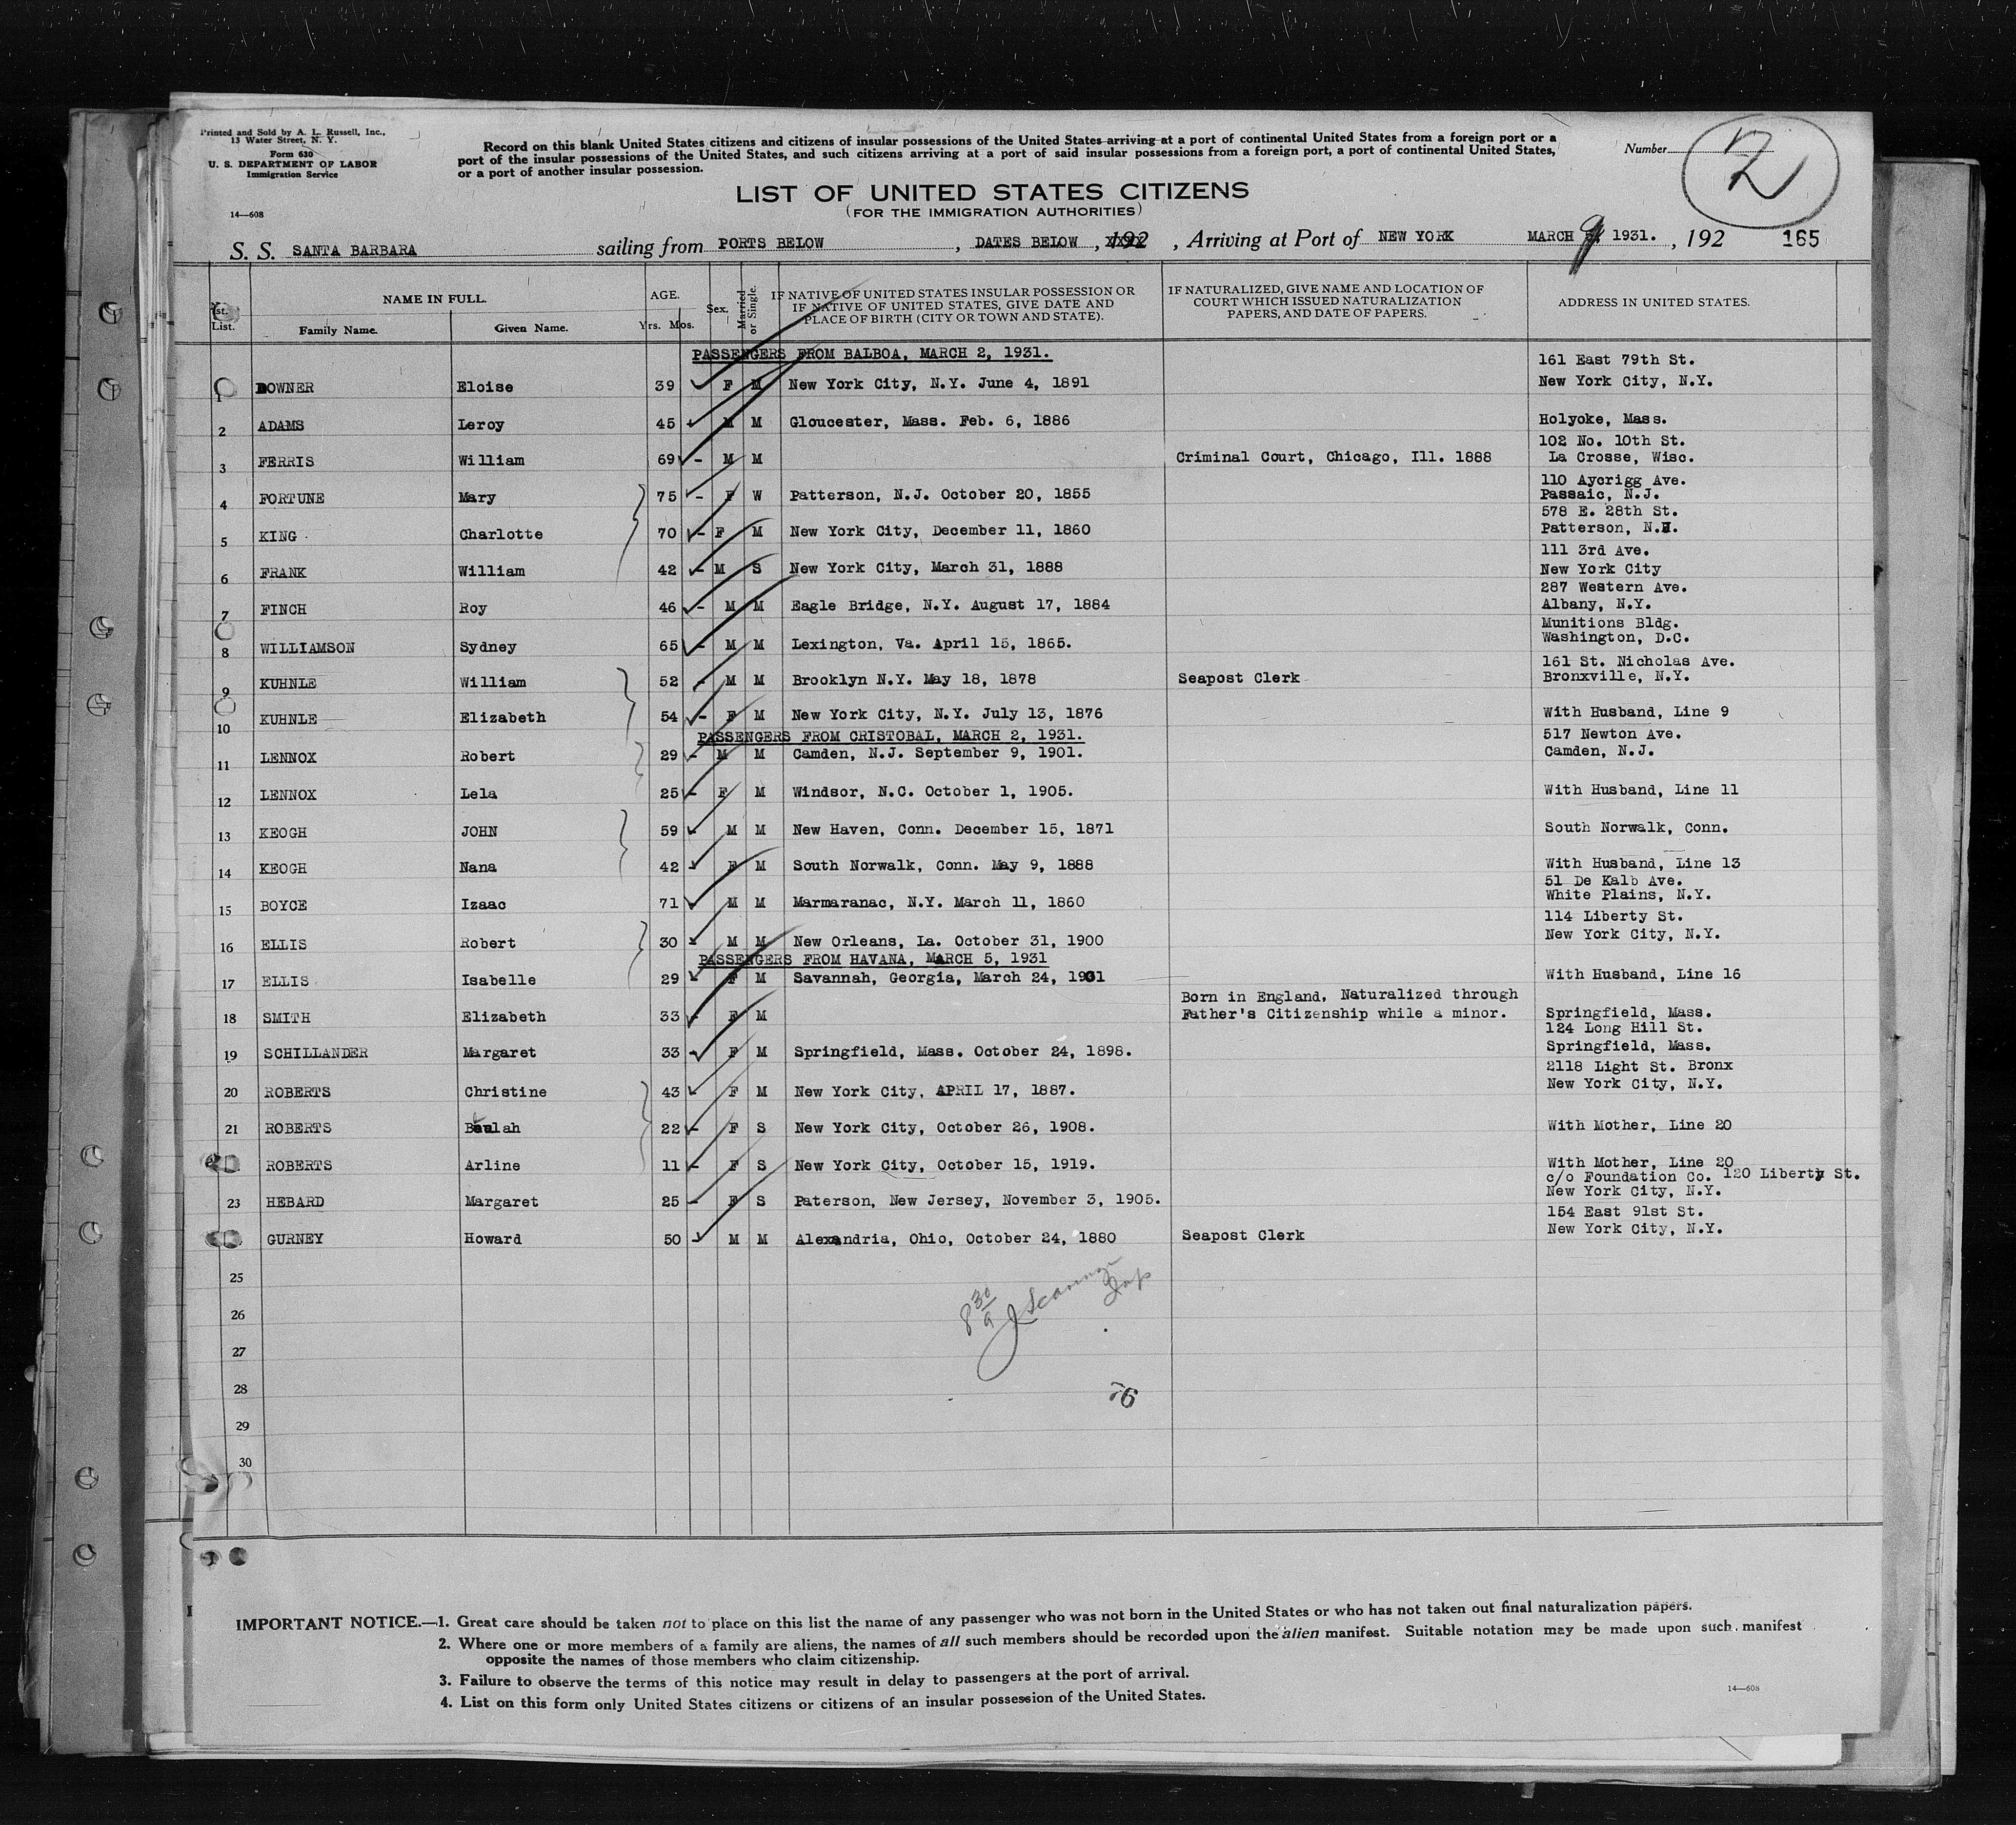 Printed and Sold by A. L. Russell, Inc.,
13 Water Street, N. Y.
Form 630
U. S. DEPARTMENT OF LABOR
Immigration Service
14—608
Record on this blank United States citizens and citizens of insular possessions of the United States arriving at a port of continental United States from a foreign port or a
port of the insular possessions of the United States, and such citizens arriving at a port of said insular possessions from a foreign port, a port of continental United States,
or a port of another insular possession.
Number 2
LIST OF UNITED STATES CITIZENS
(FOR THE IMMIGRATION AUTHORITIES)
S. S. SANTA BARBARA sailing from PORTS BELOW, DATES BELOW, 192, Arriving at Port of NEW YORK MARCH 9 1931., 192 165
List. NAME IN FULL. Family Name. Given Name. AGE. Yrs. Mos. Sex. Married or Single.
IF NATIVE OF UNITED STATES INSULAR POSSESSION OR
IF NATIVE OF UNITED STATES, GIVE DATE AND
PLACE OF BIRTH (CITY OR TOWN AND STATE).
IF NATURALIZED, GIVE NAME AND LOCATION OF
COURT WHICH ISSUED NATURALIZATION
PAPERS, AND DATE OF PAPERS.
ADDRESS IN UNITED STATES.
PASSENGERS FROM BALBOA, MARCH 2, 1931.
161 East 79th St.
1 DOWNER Eloise 39 F M New York City, N.Y. June 4, 1891 New York City, N.Y.
2 ADAMS Leroy 45 M M Gloucester, Mass. Feb. 6, 1886 Holyoke, Mass.
102 No. 10th St.
3 FERRIS William 69 - M M Criminal Court, Chicago, Ill. 1888 La Crosse, Wisc.
110 Aycrigg Ave.
4 FORTUNE Mary 75 - F W Patterson, N.J. October 20, 1855 Passaic, N.J.
578 E. 28th St.
5 KING Charlotte 70 - F M New York City, December 11, 1860 Patterson, N.J.
111 3rd Ave.
6 FRANK William 42 - M S New York City, March 31, 1888 New York City
287 Western Ave.
7 FINCH Roy 46 - M M Eagle Bridge, N.Y. August 17, 1884 Albany, N.Y.
Munitions Bldg.
8 WILLIAMSON Sydney 65 - M M Lexington, Va. April 15, 1865. Washington, D.C.
161 St. Nicholas Ave.
9 KUHNLE William 52 - M M Brooklyn N.Y. May 18, 1878 Seapost Clerk Bronxville, N.Y.
10 KUHNLE Elizabeth 54 - F M New York City, N.Y. July 13, 1876 With Husband, Line 9
PASSENGERS FROM CRISTOBAL, MARCH 2, 1931.
517 Newton Ave.
11 LENNOX Robert 29 - M M Camden, N.J. September 9, 1901. Camden, N.J.
12 LENNOX Lela 25 - F M Windsor, N.C. October 1, 1905. With Husband, Line 11
13 KEOGH JOHN 59 - M M New Haven, Conn. December 15, 1871 South Norwalk, Conn.
14 KEOGH Nana 42 - F M South Norwalk, Conn. May 9, 1888 With Husband, Line 13
51 De Kalb Ave.
15 BOYCE Izaac 71 M M Marmaranac, N.Y. March 11, 1860 White Plains, N.Y.
114 Liberty St.
16 ELLIS Robert 30 - M M New Orleans, La. October 31, 1900 New York City, N.Y.
PASSENGERS FROM HAVANA, MARCH 5, 1931
17 ELLIS Isabelle 29 F M Savannah, Georgia, March 24, 1901 With Husband, Line 16
Born in England, Naturalized through
18 SMITH Elizabeth 33 - F M Father's Citizenship while a minor. Springfield, Mass.
124 Long Hill St.
19 SCHILLANDER Margaret 33 - F M Springfield, Mass. October 24, 1898. Springfield, Mass.
2118 Light St. Bronx
20 ROBERTS Christine 43 - F M New York City, APRIL 17, 1887. New York City, N.Y.
21 ROBERTS Beulah 22 - F S New York City, October 26, 1908. With Mother, Line 20
ROBERTS Arline 11 - F S New York City, October 15, 1919. With Mother, Line 20
c/o Foundation Co. 120 Liberty St.
23 HEBARD Margaret 25 - F S Paterson, New Jersey, November 3, 1905. New York City, N.Y.
154 East 91st St.
GURNEY Howard 50 - M M Alexandria, Ohio, October 24, 1880 Seapost Clerk New York City, N.Y.
25
26
27
28
29
30
8 30/a
76
IMPORTANT NOTICE.—1. Great care should be taken not to place on this list the name of any passenger who was not born in the United States or who has not taken out final naturalization papers.
2. Where one or more members of a family are aliens, the names of all such members should be recorded upon the alien manifest. Suitable notation may be made upon such manifest
opposite the names of those members who claim citizenship.
3. Failure to observe the terms of this notice may result in delay to passengers at the port of arrival.
4. List on this form only United States citizens or citizens of an insular possession of the United States.
14—608